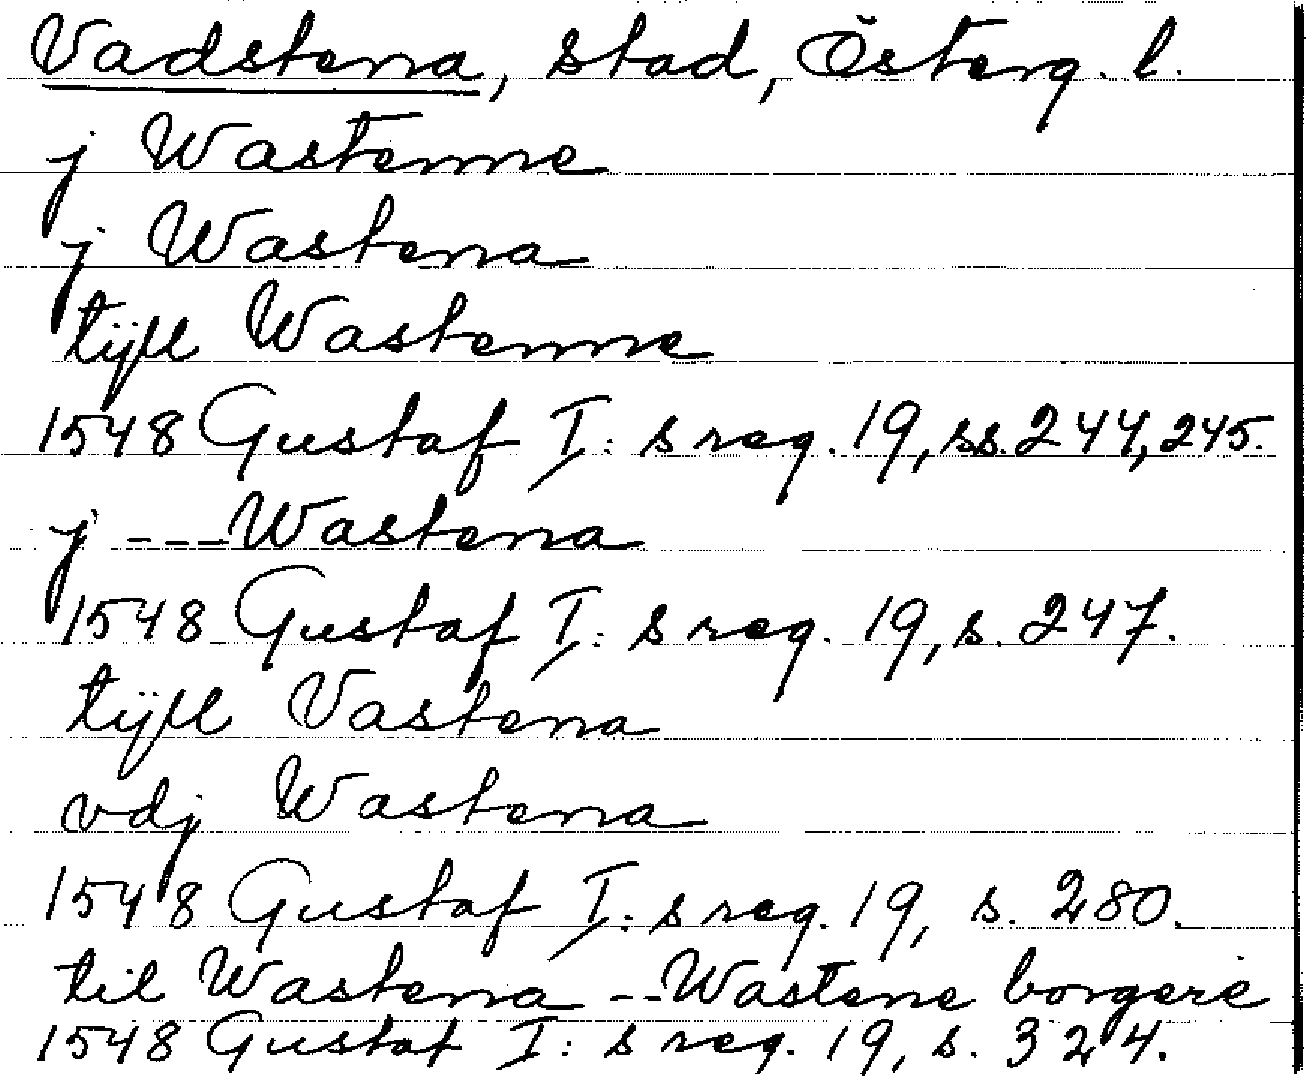 Vadstena, stad, Österg. l.
j Wastenne
j Wastena
tijll Wastenne
1548 Gustaf I: s reg. 19, ss. 244, 245.
j --- Wastena
1548 Gustaf I: s reg. 19, s. 247.
tijll Vastena
vdj Wastena
1548 Gustaf I: s reg. 19, s. 280.
til Wastena -- Wastene borgere
1548 Gustaf I: s reg. 19, s. 324.